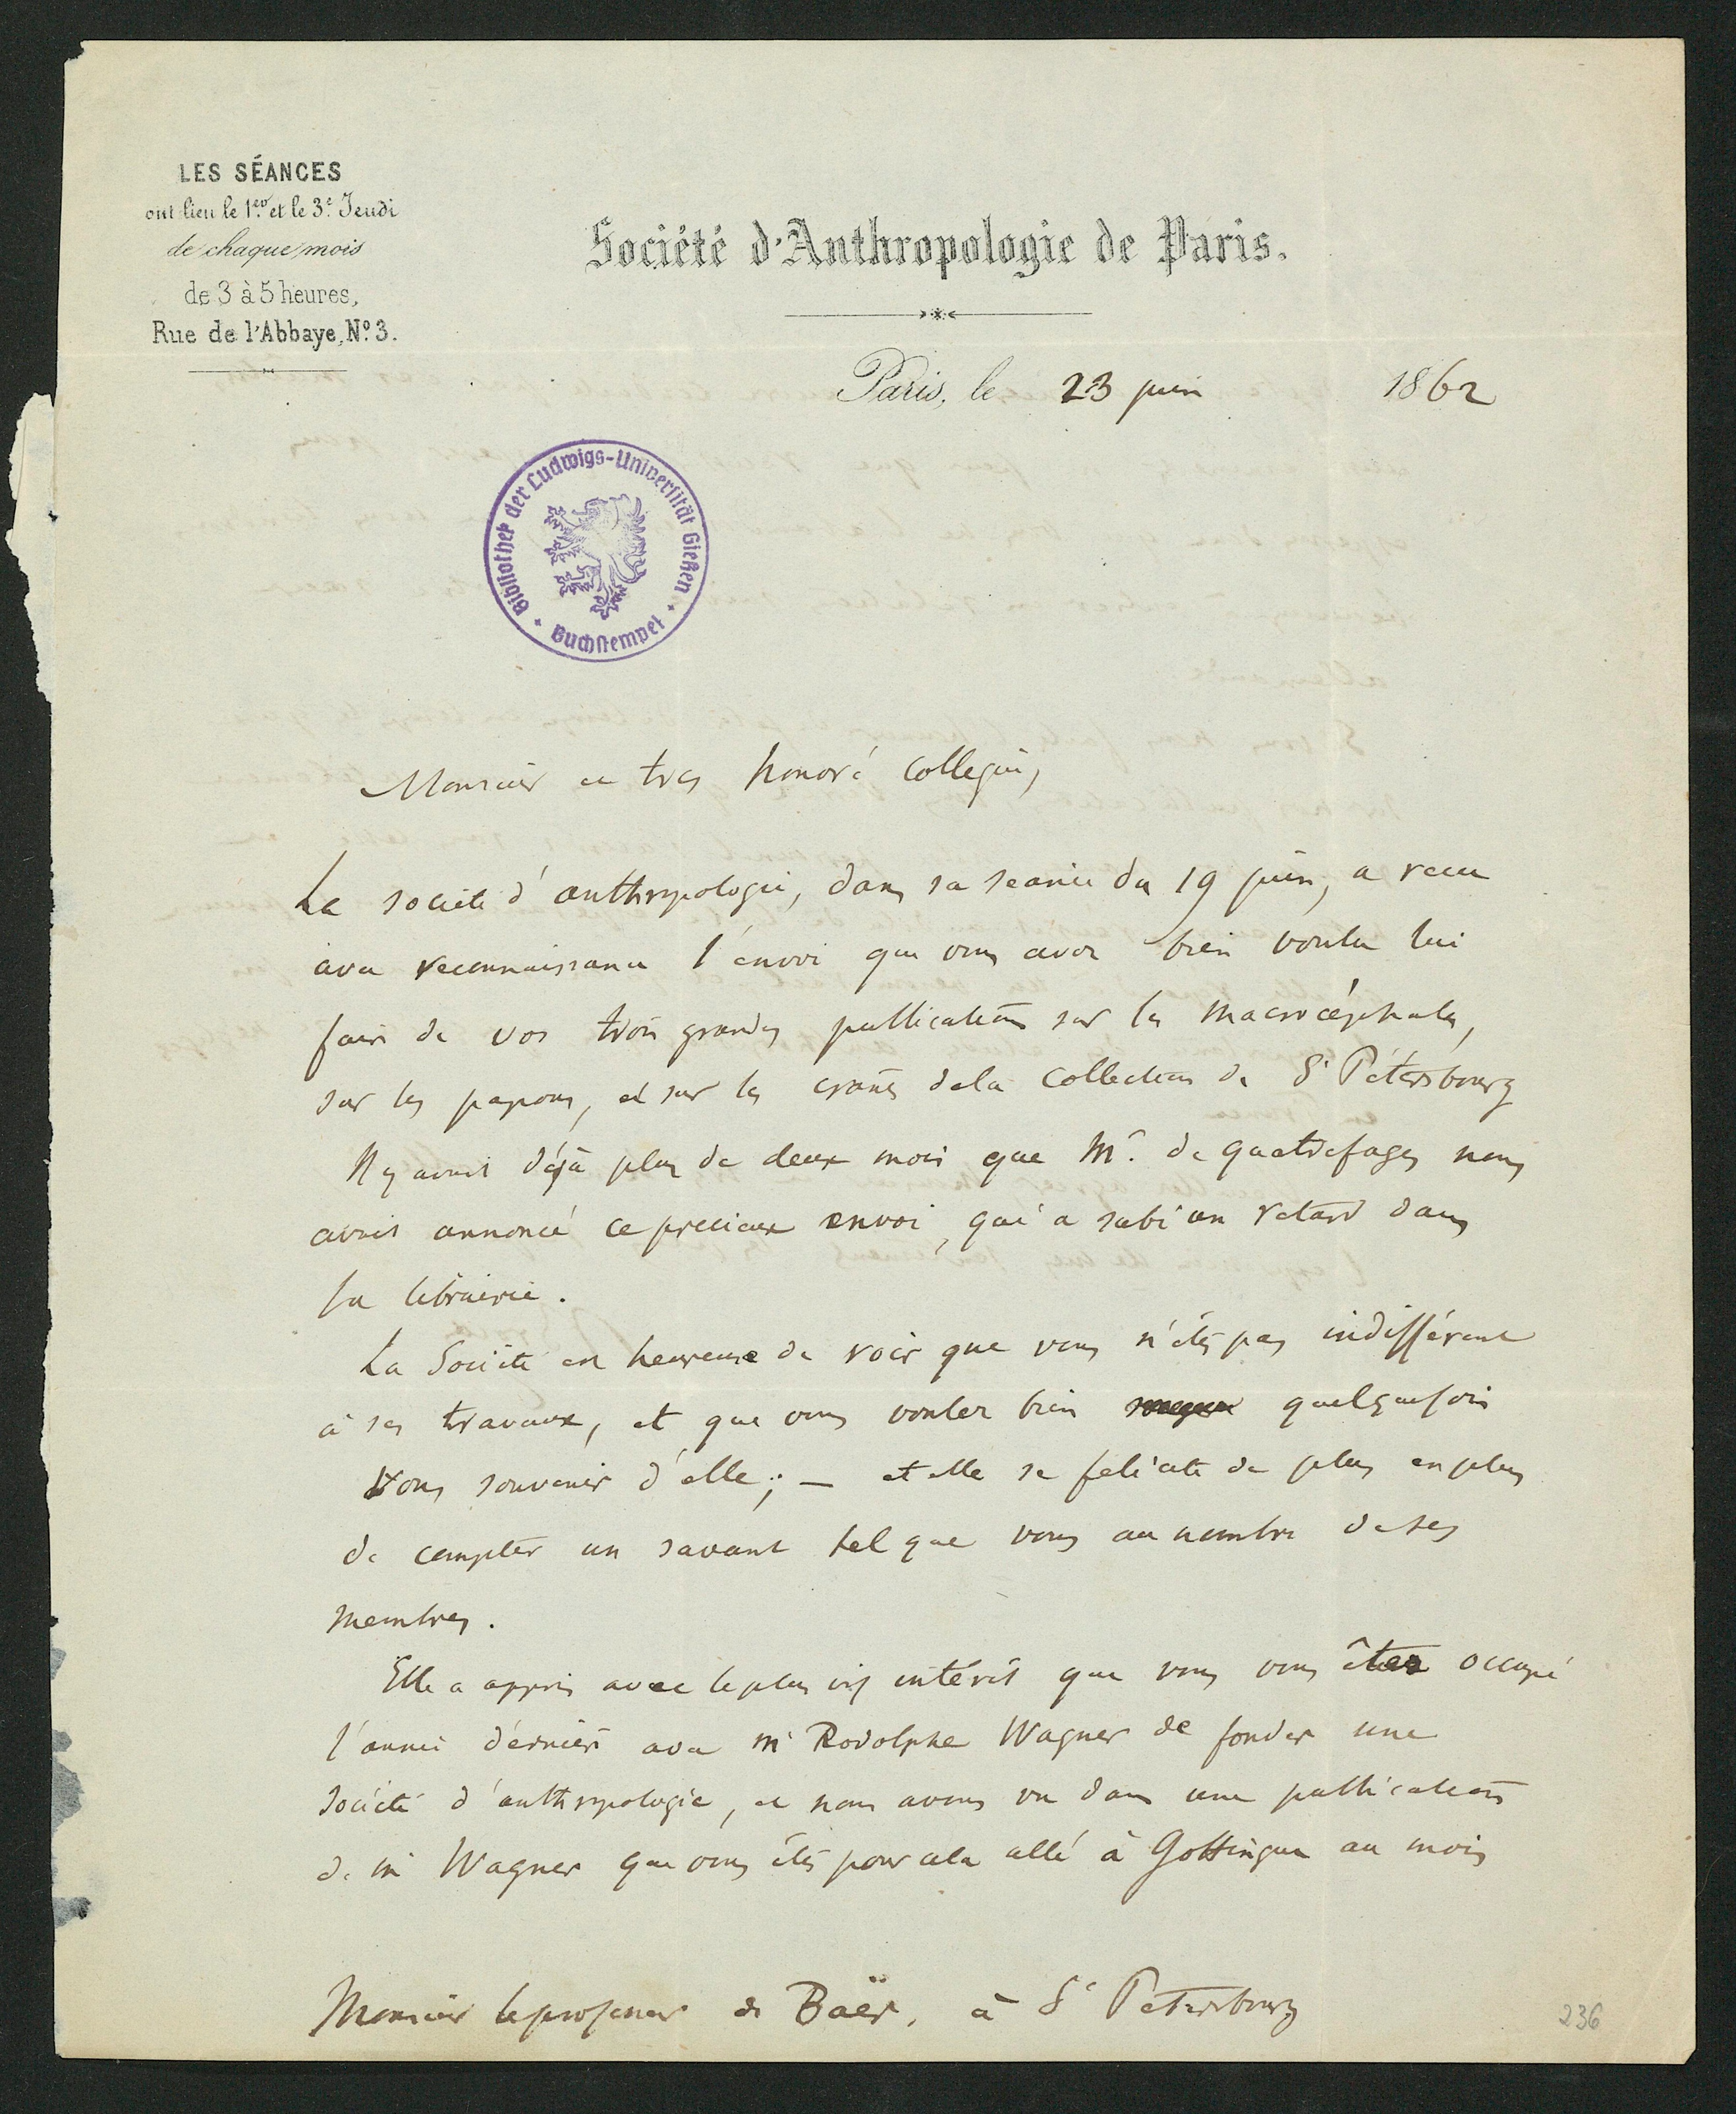 LES SÉANCES
ont lieu le 1er et le 3e Jeudi
de chaque mois
de 3 à 5 heures,
Rue de l'Abbaye, No. 3.
Société d'Anthropologie de Paris.
Paris, le 23 juin 1862
Bibliothek der Ludwigs-Universität Gießen
Buchstempel
Monsieur et tres honoré collegue,
La societé d'anthropologie, dans sa seance du 19 juin, a recu
avec reconnaissance l'envoi que vous avez bien voulu lui
faire de vos trois grandes publications sur les macrocéphales,
sur les papous, et sur les crânes de la collection de St Pétersbourg
Il y avait déjà plus de deux mois que Mr. de Quatrefages nous
avait annoncé ce precieux envoi, qui a subi un retard dans
la librairie.
La Société est heureuse de voir que vous n'êtes pas indifférent
à ses travaux, et que vous voulez bien quelquefois
vous souvenir d'elle; — et elle se felicite de plus en plus
de compter un savant tel que vous au nombre de ses
membres.
Elle a appris avec le plus vif intérêt que vous vous êtes occupé
l'année dernière avec Mr Rodolphe Wagner de fonder une
Société d'anthropologie, et nous avons vu dans une publication
de Mr Wagner que vous êtes pour cela allé à Gottingue au mois
Monsieur le professeur de Baër, à St Petersbourg
236